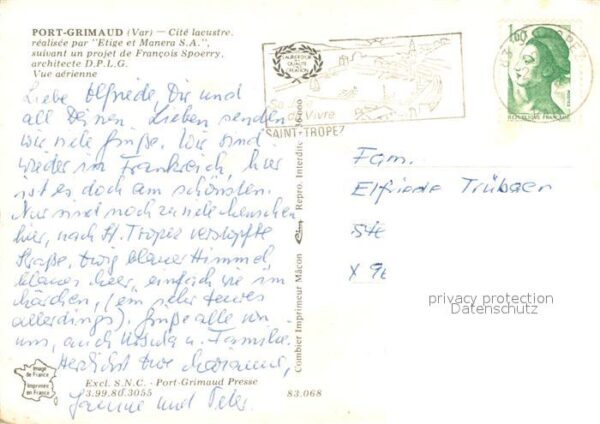 PORT-GRIMAUD (Var) — Cité lacustre,
réalisée par "Etige et Manera S.A.",
suivant un projet de François Spoerry,
architecte D.P.L.G.
Vue aérienne
Liebe Elfriede Dir und
all Deinen Lieben senden
wir viele Grüße. Wir sind
wieder in Frankreich, hier
ist es doch am schönsten.
Nur sind noch zu viele Menschen
hier, nach St. Tropez verstopfte
Straße, ewig blauer Himmel
blaues Meer, einfach wie im
Märchen, (ein sehr teures
allerdings). Grüße alle von
uns, auch Ursula u. Familie.
Herzlichst Eure Marianne,
und Peter.
Image
de France
Imprimée
en France
Excl. S.N.C. - Port-Grimaud Presse
3.99.80.3055
83.068
Combier Imprimeur Mâcon
Repro. Interdite
LAURÉAT DE LA
QUALITÉ
DE
CRÉATION
de Vivre
SAINT-TROPEZ
1,00
REPUBLIQUE FRANÇAISE
TROPEZ
Fam.
Elfriede
privacy protection
Datenschutz